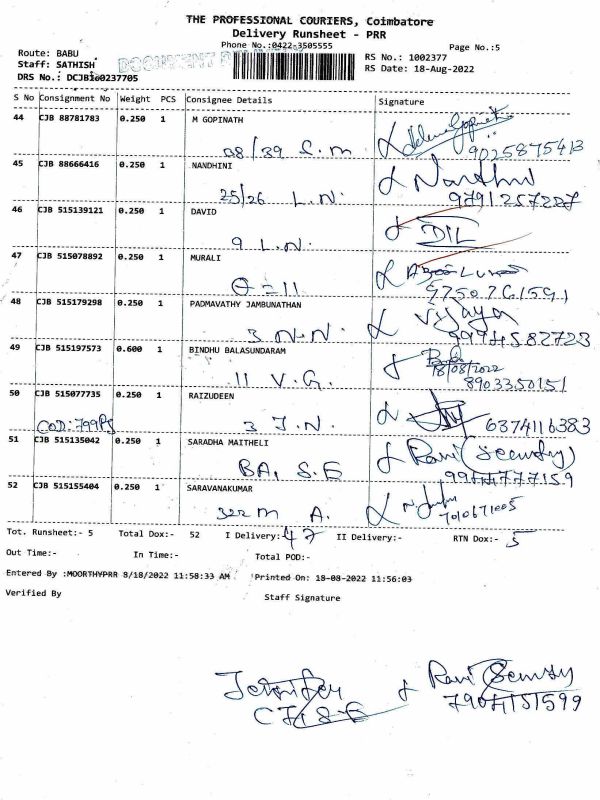 THE PROFESSIONAL COURIERS, Coimbatore
Delivery Runsheet - PRR
Phone No.:0422-3505555
Page No.:5
Route: BABU
Staff: SATHISH
DRS No.: DCJB100237705
RS No.: 1002377
RS Date: 18-Aug-2022
S No Consignment No Weight PCS Consignee Details Signature
44 CJB 88781783 0.250 1 M GOPINATH
38/39 S.M
9025875413
45 CJB 88666416 0.250 1 NANDHINI
25/26 L.N.
Nandhini
9791257227
46 CJB 515139121 0.250 1 DAVID
9 L.N.
47 CJB 515078892 0.250 1 MURALI
9750761591
48 CJB 515179298 0.250 1 PADMAVATHY JAMBUNATHAN
3 N.N.
Vijaya
9994582723
49 CJB 515197573 0.600 1 BINDHU BALASUNDARAM
11 V.G.
18/08/2022
8903350151
50 CJB 515077735 0.250 1 RAIZUDEEN
COD:799PS
3 J.N.
6374116383
51 CJB 515135042 0.250 1 SARADHA MAITHELI
BA, S.E
Ravi (Security)
52 CJB 515155404 0.250 1 SARAVANAKUMAR
322 M A.
7010671005
Tot. Runsheet:- 5 Total Dox:- 52 I Delivery:- 47 II Delivery:- RTN Dox:- 5
Out Time:- In Time:- Total POD:-
Entered By :MOORTHYPRR 8/18/2022 11:58:33 AM Printed On: 18-08-2022 11:56:03
Verified By Staff Signature
Jennifer
Ravi Security
7904151599